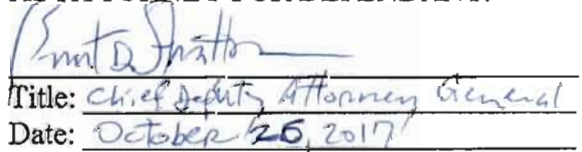 Title: Chief Deputy Attorney General
Date: October 26, 2017